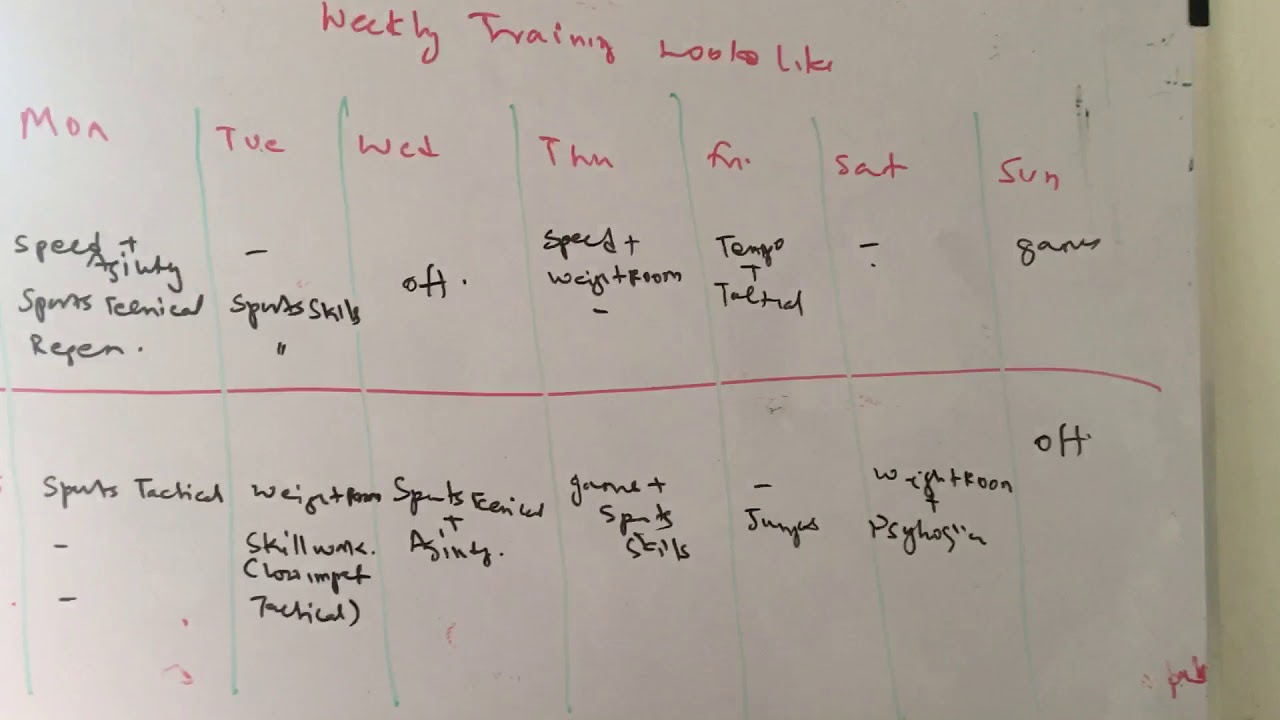 Weekly Training Looks Like
Mon Tue Wed Thu Fri. Sat Sun
Speed + Agility
Sports Tecnical
Regen.
-
Sports Skills
"
off.
Speed +
Weight Room
-
Tempo
+
Tactical
-
games
Sports Tactical
-
-
Weight Room
Skill work.
(Low impct
Tactical)
Sports Tecnical
+
Agility.
game +
Sports
Skills
-
Jumps
Weight Room
+
off.